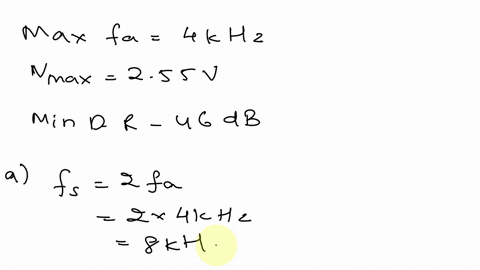 Max fa = 4 kHz
Vmax = 2.55 V
Min D R - 46 dB
a) fs = 2 fa
= 2 × 4 kHz
= 8 kH